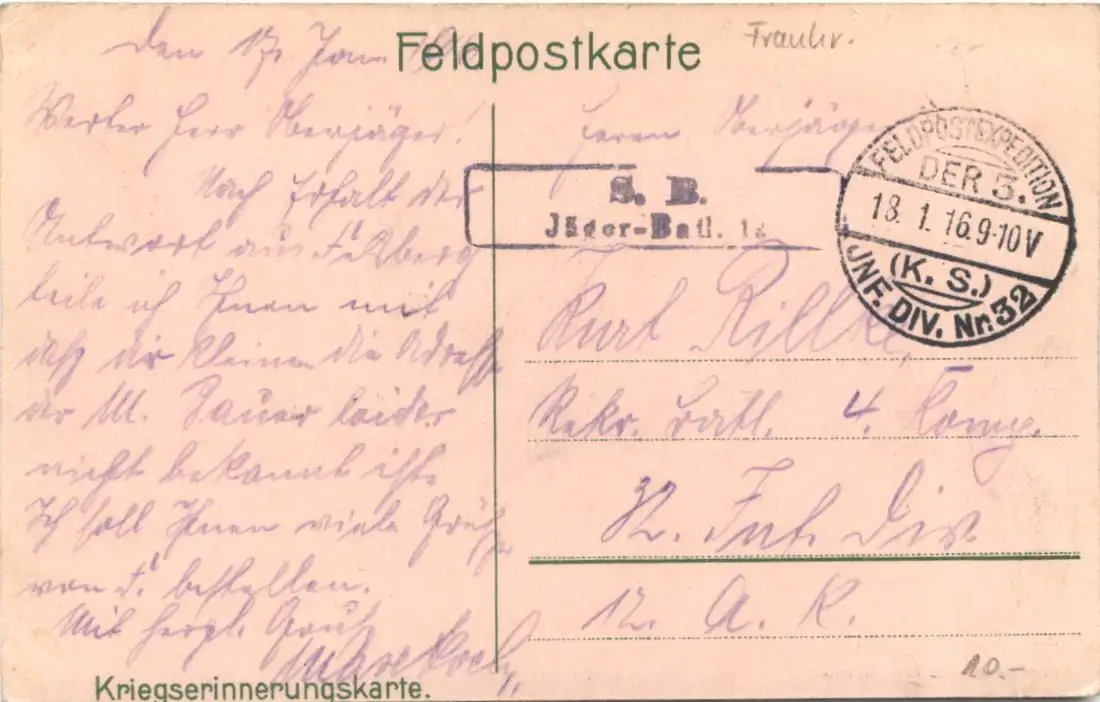 Feldpostkarte
Frankr.
Den 17. Jan. 1916
Werter Herr Oberjäger!
Nach Erhalt der
Antwort aus
teile ich Ihnen mit
daß die kleine die Adresse
der M. Sauer leider
nicht bekannt ist.
Ich soll Ihnen viele Grüße
von F. bestellen.
Mit herzl. Gruß
Kriegserinnerungskarte.
Herrn Oberjäger
S. B.
Jäger-Batl.
FELDPOSTEXPEDITION
DER 3.
18. 1. 16. 9-10 V
(K. S.)
JNF. DIV. Nr. 32
Kurt Rillke,
Rekr. Batl. 4. Komp.
32. Inf. Div.
12. A. K.
10.-